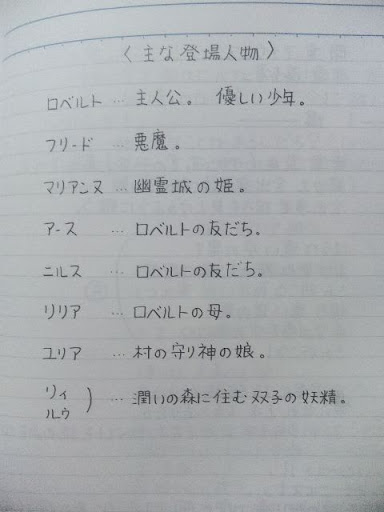 〈主な登場人物〉
ロベルト … 主人公。優しい少年。
フリード … 悪魔。
マリアンヌ … 幽霊城の姫。
アース … ロベルトの友だち。
ニルス … ロベルトの友だち。
リリア … ロベルトの母。
ユリア … 村の守り神の娘。
リィ
ルウ ) … 潤いの森に住む双子の妖精。